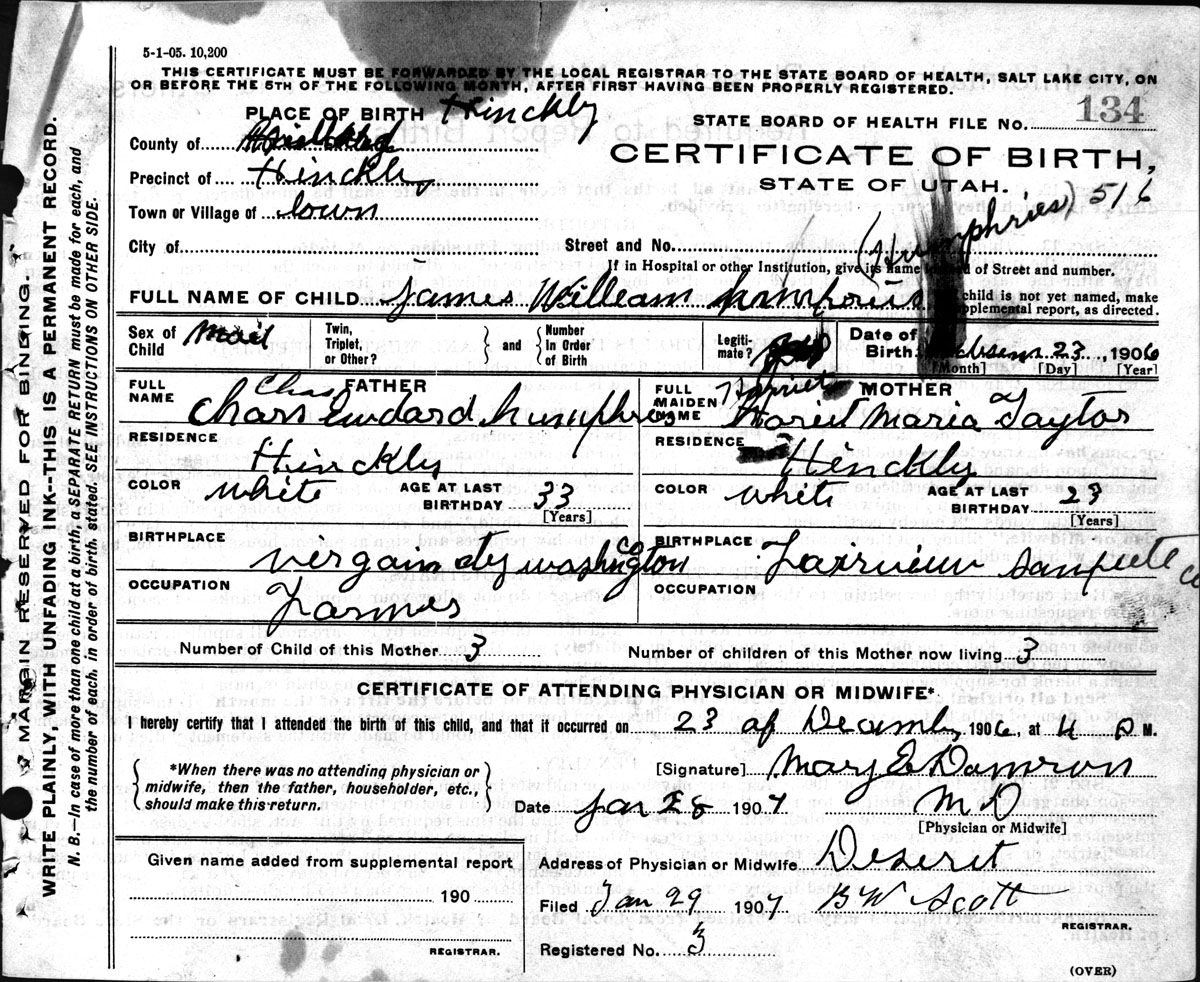 5-1-05. 10,200
THIS CERTIFICATE MUST BE FORWARDED BY THE LOCAL REGISTRAR TO THE STATE BOARD OF HEALTH, SALT LAKE CITY, ON
OR BEFORE THE 5TH OF THE FOLLOWING MONTH, AFTER FIRST HAVING BEEN PROPERLY REGISTERED.
PLACE OF BIRTH Hinckly
STATE BOARD OF HEALTH FILE No. 134
County of
CERTIFICATE OF BIRTH,
Precinct of Hinckly
STATE OF UTAH. 516
Town or Village of town
(Humphries)
City of Street and No.
If in Hospital or other Institution, give its name instead of Street and number.
FULL NAME OF CHILD James William Humphries
child is not yet named, make
supplemental report, as directed.
Sex of Child Mail
Twin, Triplet, or Other? and Number In Order of Birth
Legitimate?
Date of Birth 23, 1906
[Month] [Day] [Year]
FATHER
FULL NAME Chas
Chars Eudard humphres
RESIDENCE Hinckly
COLOR white AGE AT LAST BIRTHDAY 33 [Years]
BIRTHPLACE vergain cty washington co
OCCUPATION Farmer
MOTHER
FULL MAIDEN NAME Harriet
Hariet Maria Taytor
RESIDENCE Hinckly
COLOR white AGE AT LAST BIRTHDAY 23 [Years]
BIRTHPLACE Farrview Co
OCCUPATION
Number of Child of this Mother 3 Number of children of this Mother now living 3
CERTIFICATE OF ATTENDING PHYSICIAN OR MIDWIFE*
I hereby certify that I attended the birth of this child, and that it occurred on 23 of Decumb, 1906, at 4 P M.
*When there was no attending physician or
midwife, then the father, householder, etc.,
should make this return.
[Signature] Mary E Damron
Date Jan 28 1907 M D
[Physician or Midwife]
Given name added from supplemental report
190
REGISTRAR.
Address of Physician or Midwife Deserit
Filed Jan 29 1907 B W Scott
REGISTRAR.
Registered No. 3
(OVER)
MARGIN RESERVED FOR BINDING.
WRITE PLAINLY, WITH UNFADING INK--THIS IS A PERMANENT RECORD.
N. B.—In case of more than one child at a birth, a SEPARATE RETURN must be made for each, and
the number of each, in order of birth, stated. SEE INSTRUCTIONS ON OTHER SIDE.